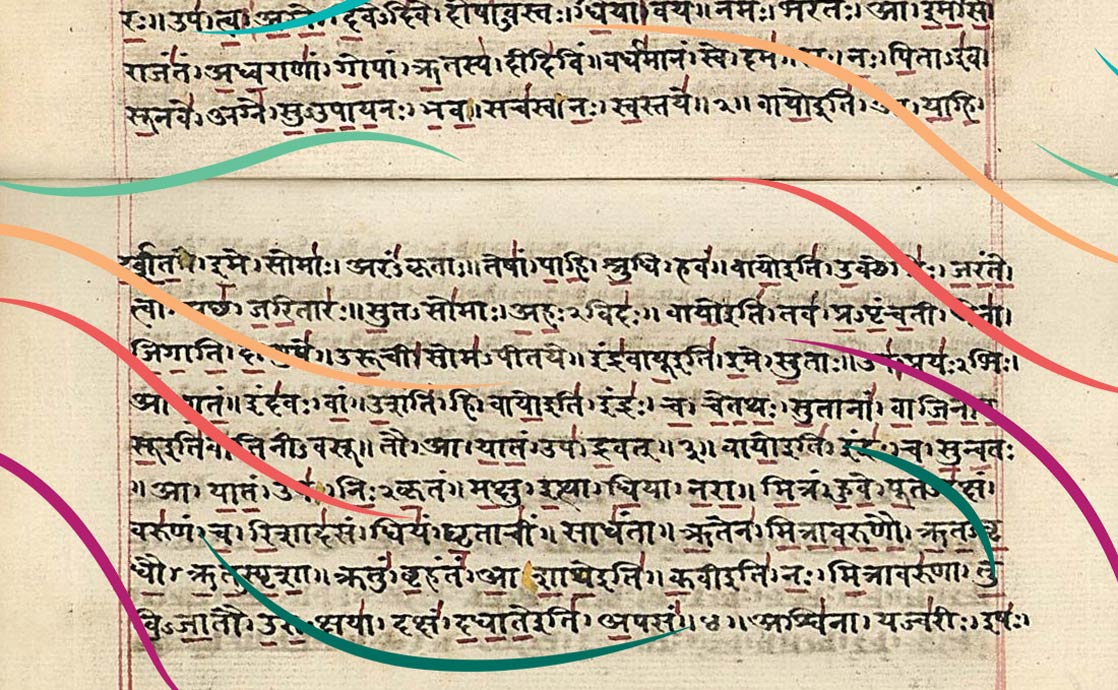 रः॥उप। त्वा। अग्ने। दिवेऽदिवे। दोषाऽवस्तः। धिया। वयं॥ नमः। भरंतः। आ। इमसि
राजंतं। अध्वराणां। गोपां। ऋतस्य। दीदिविं॥ वर्धमानं। स्वे। दमे॥ नः। पिताऽइव।
सूनवे। अग्ने। सुऽउपायनः। भव॥ सचस्व। नः। स्वस्तये॥२॥ वायोइति। याहि।
इमे। सोमाः। अरंऽकृताः॥ तेषां। पाहि। श्रुधि। हवं॥ वायोइति। जरंते।
त्वां। जरितारः॥ सुतऽसोमाः। अहःऽविदः॥ वायोइति। तव। प्रऽपृंचती।
जिगाति। उरूची। सोमऽपीतये॥ इंद्रवायूइति। इमे। सुताः॥ प्रयःऽभिः।
आ। गतं॥ इंदवः। वां। उशंति। हि। वायोइति। इंद्रः। च। चेतथः। सुतानां। वाजिनीव
सूइतिवाजिनीऽवसू॥ तौ। आ। यातं। उप। द्रवत्॥३॥ वायोइति। इंद्रः। च। सुन्वतः
। आ। यातं। उप। निःऽकृतं॥ मक्षु। इत्था। धिया। नरा॥ मित्रं। हुवे। पूतऽदक्षं।
वरुणं। च। रिशादसं। धियं। घृताचीं॥ साधंता॥ ऋतेन। मित्रावरुणौ। ऋतऽवृ
धौ। ऋतऽस्पृशा॥ क्रतुं। बृहंतं। आ। शाथेइति॥ कवीइति। नः। मित्रावरुणा। तु
विऽजातौ। उरुऽक्षया। दक्षं। दधातेइति। अपसं॥४॥ अश्विना। यज्वरीः। इषः।